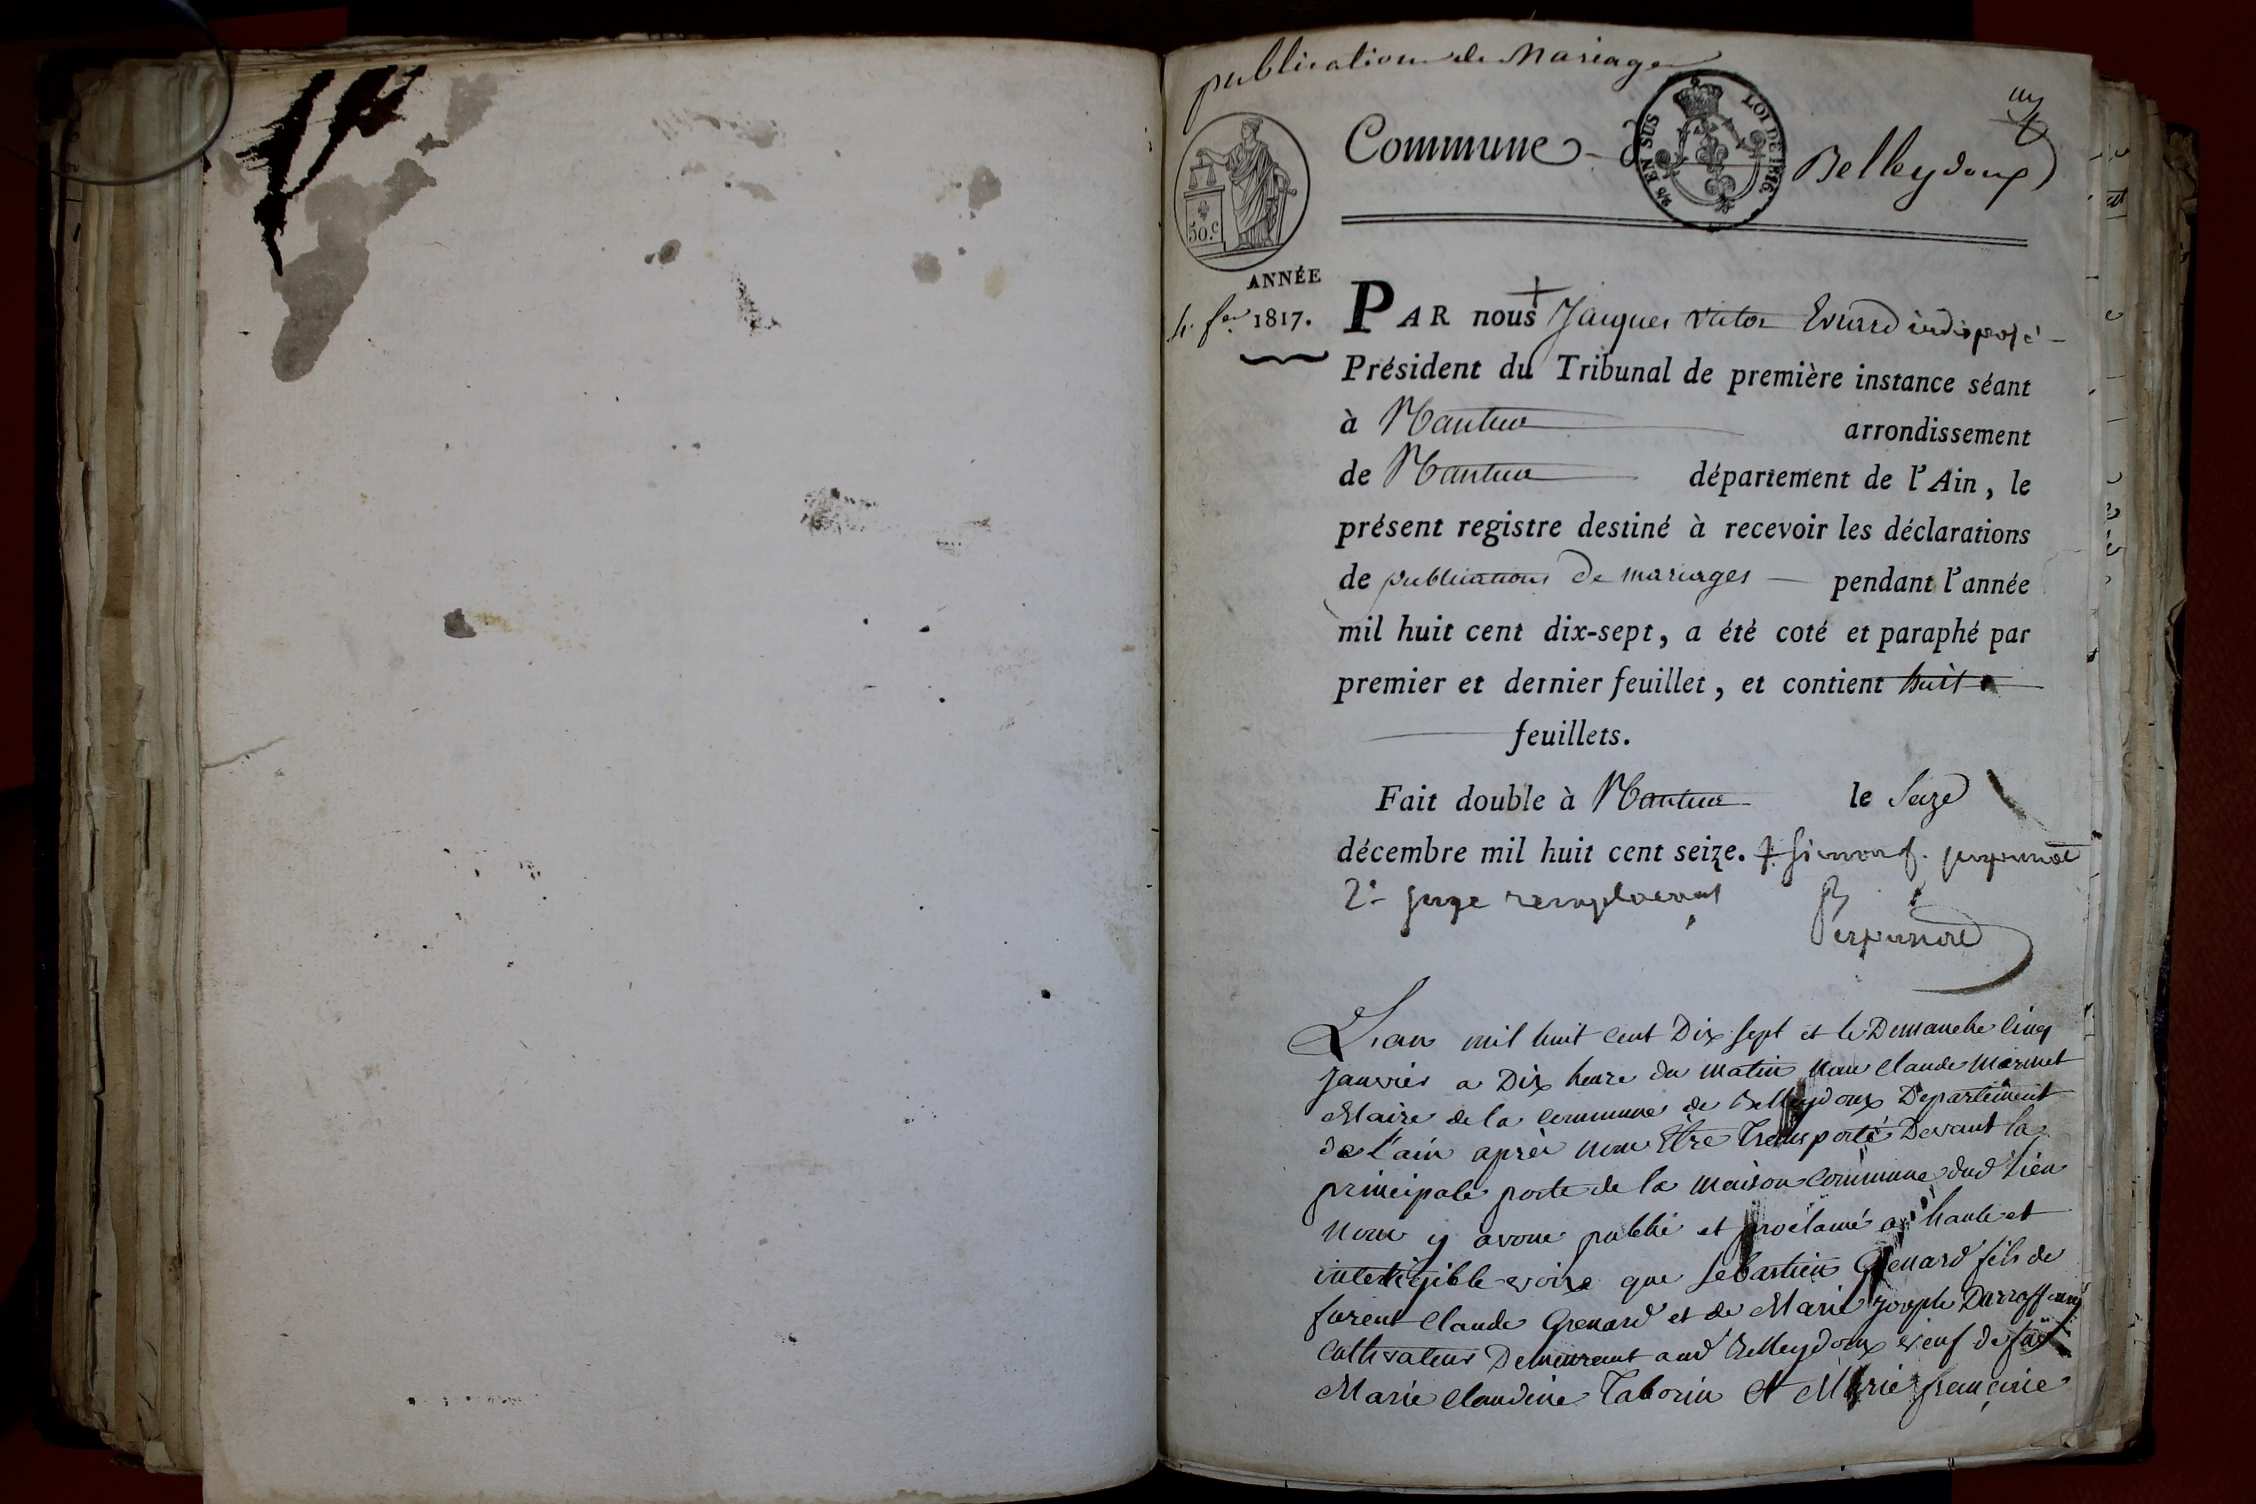 publication de Mariage
Commune de Belleydoux
EN SUS LOI DE 1816.
50.c
ANNÉE
1817.
PAR nous Jacques Victor Evrard indisposé
Président du Tribunal de première instance séant
à Nantua arrondissement
de Nantua département de l'Ain, le
présent registre destiné à recevoir les déclarations
de publications de mariages pendant l'année
mil huit cent dix-sept, a été coté et paraphé par
premier et dernier feuillet, et contient huit
feuillets.
Fait double à Nantua le Seize
décembre mil huit cent seize.
2e juge remplacant
L'an mil huit cent Dix Sept et le Dimanche cinq
Janvier a Dix heure du matin Nous Claude Mermet
Maire de la Commune de Belleydoux Departement
de L'ain après nous Etre Transporté Devant la
principale porte de la maison Commune dud lieu
Nous y avons publié et proclamé a haute et
intelligible voix que Sebastien Grenard fils de
furent Claude Grenard et de Marie Joseph
Cultivateur Demeurant aud Belleydoux veuf de
Marie Claudine Taborin et Marie françoise